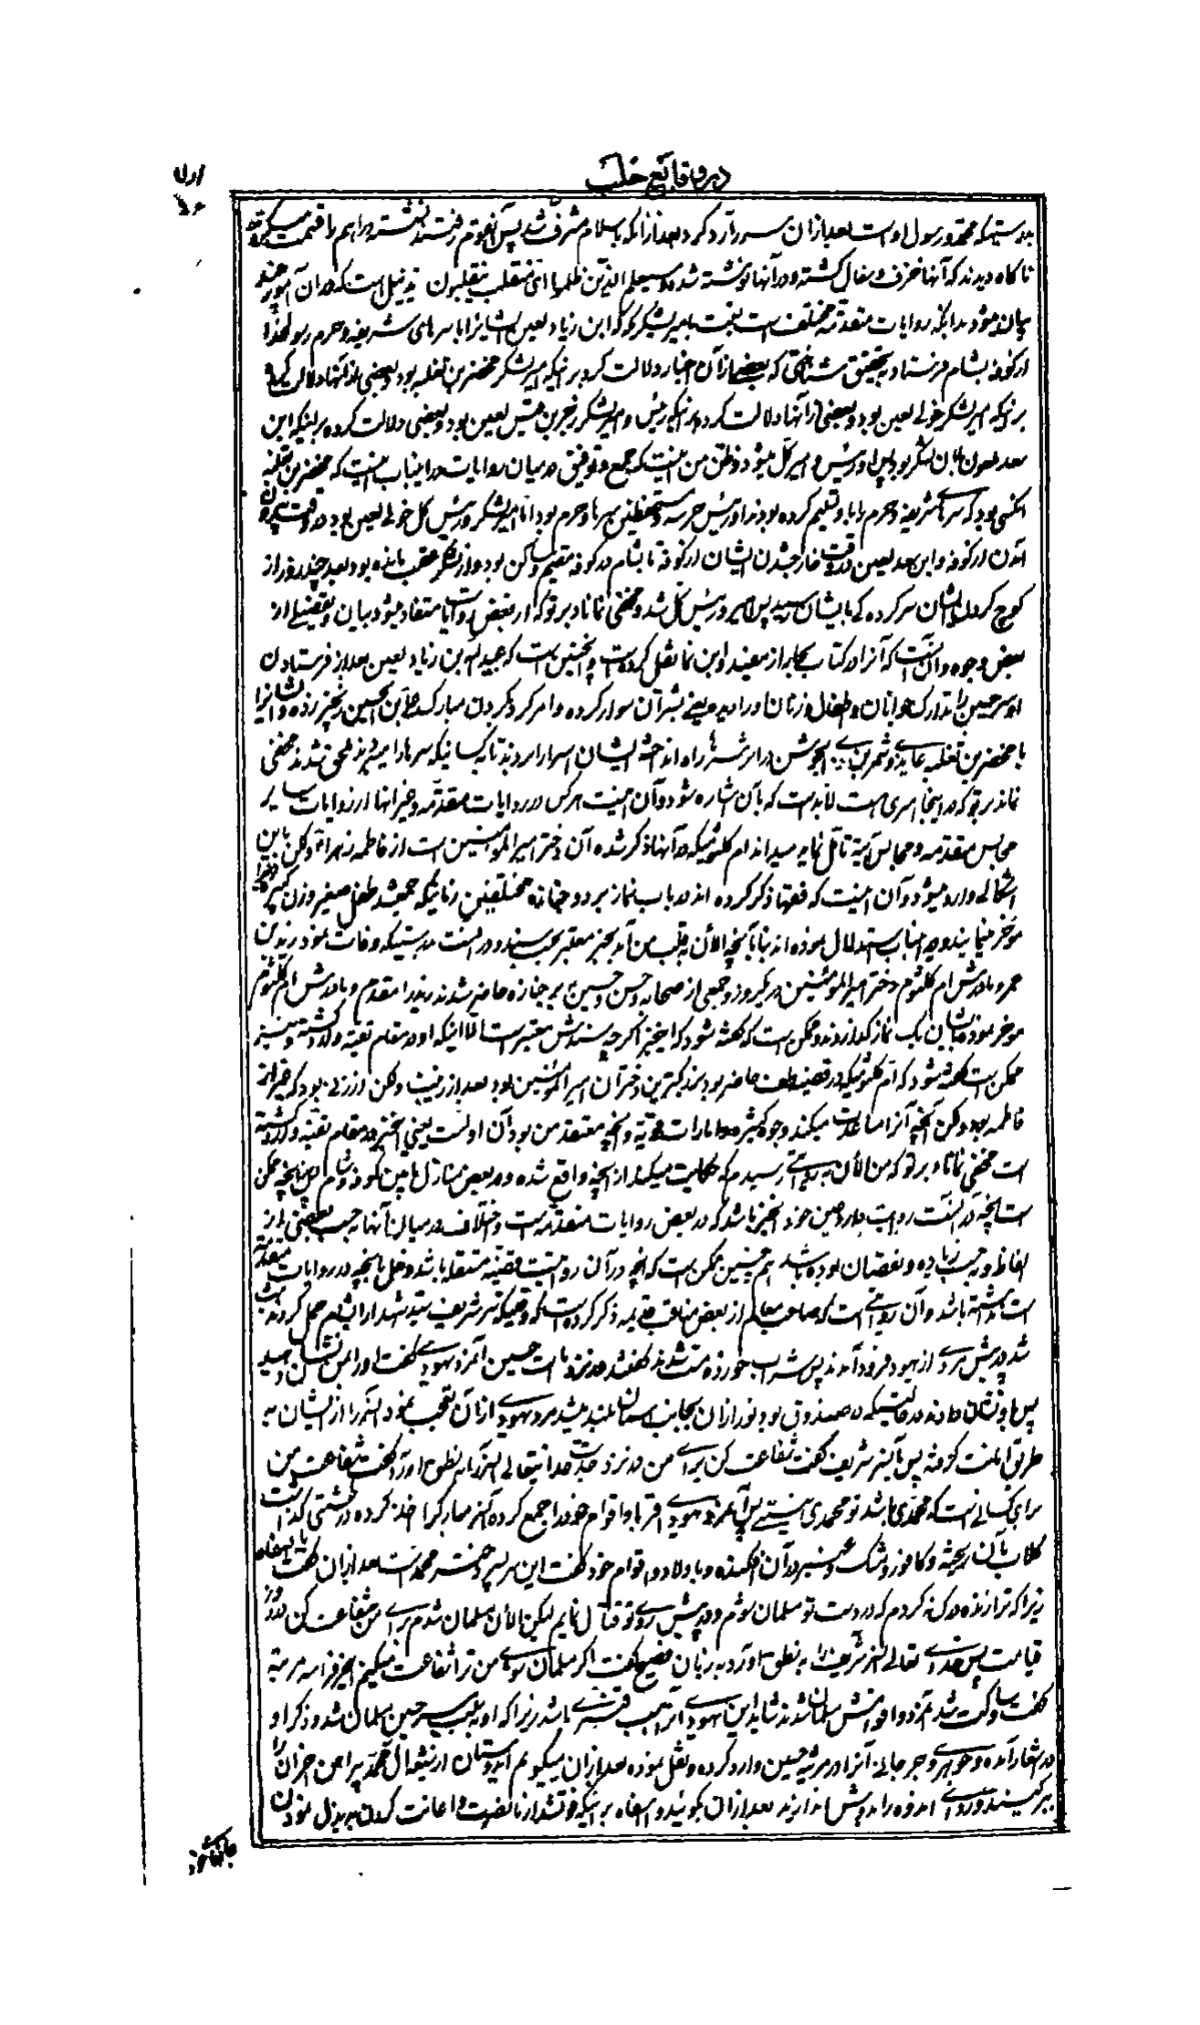 در وقایع حلب
بدرستیکه محمد رسول اوست بعد ازان سر را رد کرد بعد ازانکه باسلام مشرف شد پس آنقوم رفتند نشستند دراهم را قسمت میکردند
ناکاه دیدند که آنها خزف و سفال کشته و در آنها نوشته شده وسیعلم الذین ظلموا ای منقلب ینقلبون تذنیل است که در آن امور چند
بیان میشود بدانکه روایات متقدمه مختلف است بنسبت بامیر لشکر که ابن زیاد لعین ایشانرا با سرهای شریفه و حرم رسولخدا
از کوفه بشام فرستاد بتحقیق شناختی که بعضی از آن اخبار دلالت کرد بر اینکه امیر لشکر مخضر بن ثعلبه بود و بعضی از آنها دلالت کرد
بر اینکه امیر لشکر خولی لعین بود و بعضی از آنها دلالت کرد بر اینکه رئیس و امیر لشکر زجر بن قیس لعین بود و بعضی دلالت کرده بر اینکه ابن
سعد ملعون با آن لشکر بود پس او رئیس و امیر کل میشود و ظن من اینست که جمع و توفیق در میان روایات در اینباب اینست که مخضر بن ثعلبه
انکسی بود که سرهای شریفه و حرم را باو تسلیم کرده بودند او رئیس حرسه و مستحفظین سرها و حرم بود اما امیر لشکر و رئیس کل خولی لعین بود در وقت بیرون
آمدن از کوفه و ابن سعد لعین در وقت خارج شدن ایشان از کوفه تا بشام در کوفه مقیم و ساکن بود و از لشکر عقب مانده بود بعد چند روز از
کوچ کردن ایشان سر کرده که بایشان رسید پس امیر و رئیس کل شد و مخفی نماناد بر تو که از بعض روایات مستفاد میشود بیان و تفصیلی از
بعض وجوه و آن آنست که آنرا در کتاب بحار از مفید و ابن نما نقل کرده است و آن چنین است که عبیدالله بن زیاد لعین بعد از فرستادن
او سر حسین را تدارک جوانان و طفل و زنان او را دید یعنی بشتران سوار کرده و امر کرد که در کردن مبارک علی بن الحسین زنجیر زدند و ایشانرا
با مخضر بن ثعلبه عایدی و شمر بن ذی الجوشن در اثر سرها راه انداخت ایشان اسرا را بردند تا بکسانیکه سرها را میبردند ملحق شدند مخفی
نماند بر تو که در اینجا امری هست لابد است که بآن اشاره شود و آن اینست هر کس در روایات متقدمه و غیر انها از روایات سایر
مجالس متقدمه و مجالس آتیه تامل نماید میداند ام کلثومیکه در آنها ذکر شده آن دختر امیرالمومنین است از فاطمه زهراء و لکن باین
اشکالی وارد میشود و آن اینست که فقها ذکر کرده اند در باب نماز بر دو جنازه مختلفین زمانیکه جمع شد طفل صغیر و زن کبیره طفل را
مؤخر مینمایند و در اینباب استدلال نموده اند بنا بآنچه الآن بقلب من آمد بخبر معتبر بحسب سند و در آنست بدرستیکه وفات نمود زید بن
عمر و مادرش ام کلثوم دختر امیرالمؤمنین در یکروز و جمعی از صحابه و حسن و حسین بر جنازه حاضر شدند زید را مقدم و مادرش ام کلثوم
مؤخر نموده بایشان یک نماز کذاردند و ممکن است که کفته شود که اینخبر اکر چه سندش معتبر است الا اینکه او در مقام تقیه وارد کشته و نیز
ممکن است کفته شود که ام کلثومیکه در قضیه طف حاضر بود بزرکترین دختران امیرالمؤمنین بود بعد از زینب و لکن از زنی بود که غیر از
فاطمه بود و لکن آنچه آنرا مساعدت میکند وجوه کثیره و امارات قویه و آنچه معتقد من بود آن اولست یعنی اینخبر در مقام تقیه وارد کشته
است مخفی نماناد بر تو که من الآن بروایتی رسیدم که حکایت میکند از آنچه واقع شده و در بعض منازل ما بین کوفه و شام پس آنچه ممکن
است آنچه در آنست روایت چهاردهمین خود اینخبر باشد که در بعض روایات متقدمه است و اختلاف در میان آنها بحسب بعضی از
الفاظ و بحسب زیاده و نقصان بوده باشد هم چنین ممکن است که آنچه در آن روایتست قضیه مستقله باشد و دخل بآنچه در روایات متقدمه
است نداشته باشد و آن روایتی است که صاحب معالم از بعض مناقب قدیمه ذکر کرده است که وقتیکه سر شریف سید شهدا را بشام حمل کردند شب
شد پیش مردی از یهود فرود آمدند پس شراب خورده مست شدند کفتند در نزد ماست سر حسین آنمرد یهودی کفت او را بمن نشان دهید
پس باو نشان دادند در حالتیکه در صندوق بود نور ازان بجانب آسمان بلند میشد مرد یهودی ازان تعجب نمود آنسر را از ایشان به
طریق امانت کرفته پس بآنسر شریف کفت شفاعت کن برای من در نزد جدت خدا تعالی آنسر را به نطق آورد کفت شفاعت من
برای کسانی است که محمدی باشد تو محمدی نیستی پس آنمرد یهودی اقربا و اقوام خود را جمع کرده آنسر مبارک را اخذ کرده در طشتی کذاشت
کلاب بآن ریخته و کافور و مشک و عنبر در آن افکنده و باولاد و اقوام خود کفت این سر پسر دختر محمد است بعد ازان کفت یا لهفاه
زیرا که ترا زنده درک نکردم که در دست تو مسلمان بشوم و در پیش روی تو قتال نمایم لیکن الآن مسلمان شدم برای من شفاعت کن در روز
قیامت پس خدای تعالی آنسر شریف را به نطق آورد به زبان فصیح کفت اکر مسلمان شوی من ترا شفاعت میکنم اینحرف را سه مرتبه
کفت و ساکت شد آنمرد و اقوامش مسلمان شدند شاید این یهودی راهب قنسرین باشد زیرا که او به سبب سر حسین مسلمان شد و ذکر او
در اشعار آمده و جوهری جرجانی آنرا در مرثیه حسین وارد کرده و نقل نموده بعد ازان میکویم ایدوستان ال محمد پیراهن احزان را
ببر کنید و ردای اندوه را بدوش اندازید بعد ازان بکوئید وا اسفاه بر اینکه فوت شد از ما نصرت و اعانت کردن به بذل نمودن